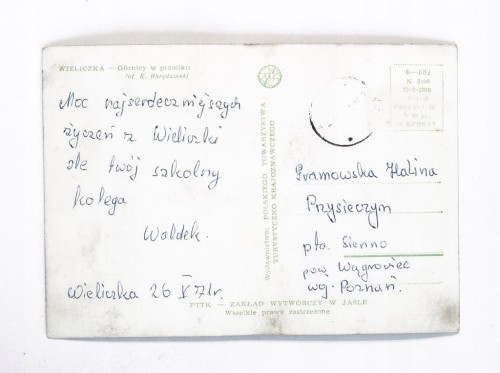 WIELICZKA — Górnicy w przodku
Fot. K.
Moc najserdeczniejszych
życzeń z Wieliczki
śle twój szkolny
kolega
Waldek.
Wieliczka 26 V 71r.
Wydawnictwo: POLSKIEGO TOWARZYSTWA
TURYSTYCZNO KRAJOZNAWCZEGO
6—682
Pramowska Halina
Przysieczyn
pta. Sienno
pow. Wągrowiec
wój. Poznań.
PTTK — ZAKŁAD WYTWÓRCZY W JAŚLE
Wszelkie prawa zastrzeżone